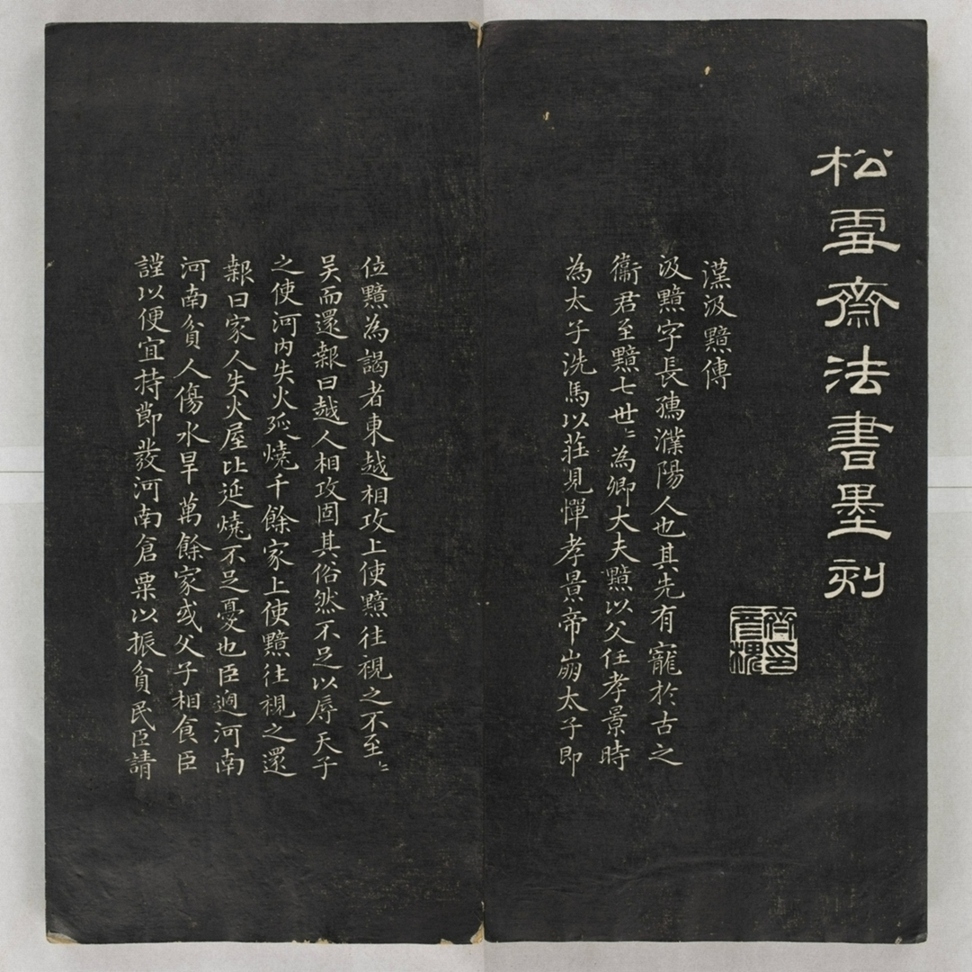 松雪齋法書墨刻
漢汲黯傳
汲黯字長孺濮陽人也其先有寵於古之
衞君至黯七世〻為卿大夫黯以父任孝景時
為太子洗馬以莊見憚孝景帝崩太子即
位黯為謁者東越相攻上使黯往視之不至〻
吴而還報曰越人相攻固其俗然不足以辱天子
之使河内失火延燒千餘家上使黯往視之還
報曰家人失火屋比延燒不足憂也臣過河南
河南貧人傷水旱萬餘家或父子相食臣
謹以便宜持節發河南倉粟以振貧民臣請